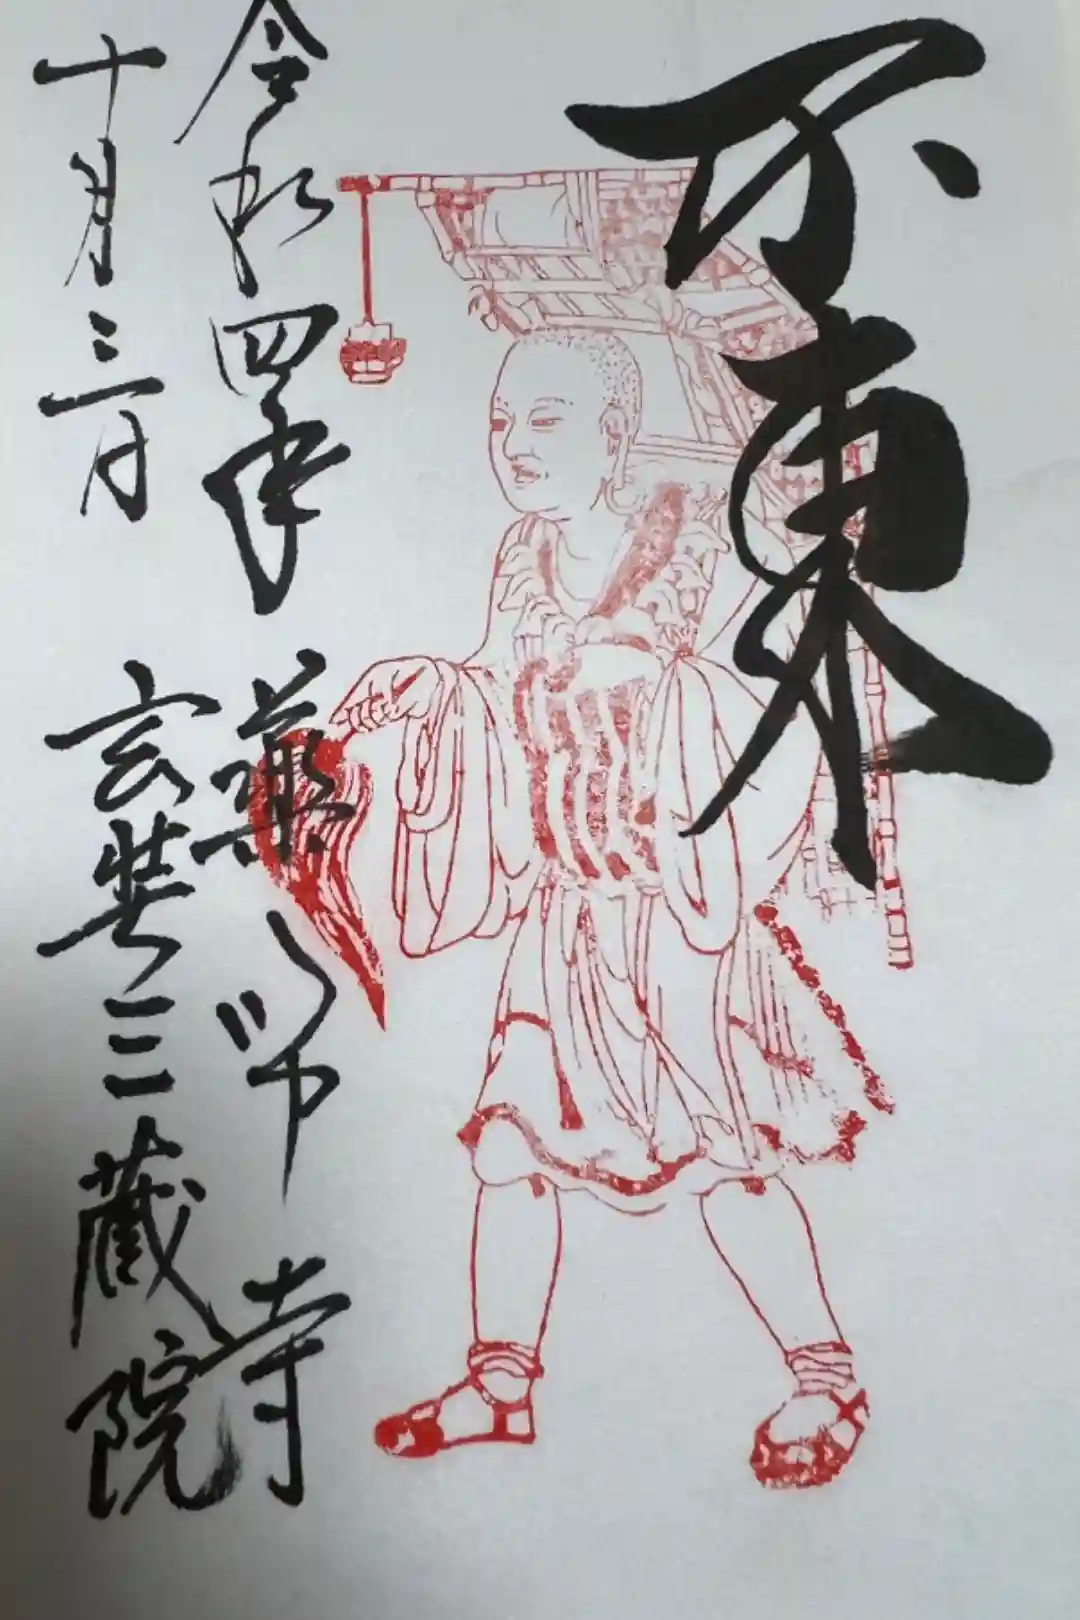 不東
令和四年 薬師寺
十月三日 玄奘三蔵院